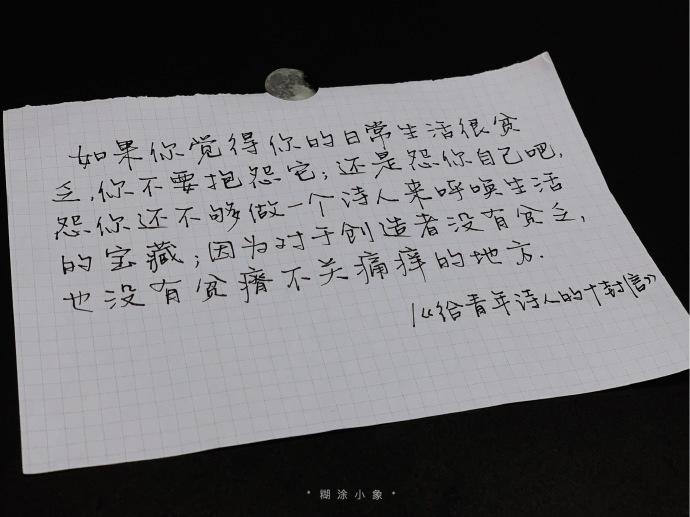 如果你觉得你的日常生活很贫
乏,你不要抱怨它;还是怨你自己吧,
怨你还不够做一个诗人来呼唤生活
的宝藏;因为对于创造者没有贫乏,
也没有贫瘠不关痛痒的地方.
/《给青年诗人的十封信》
* 糊涂小象 *